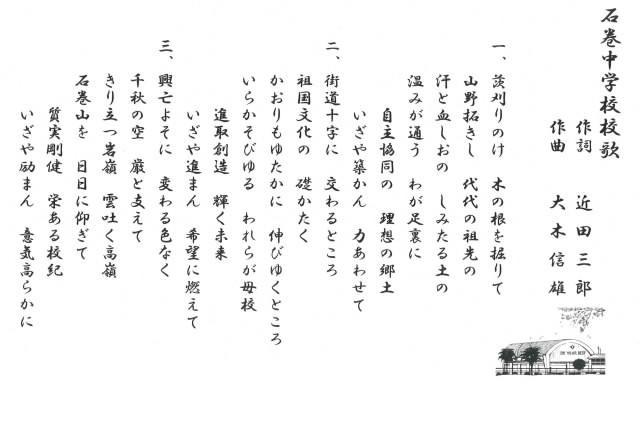 石巻中学校校歌
作詞 近田三郎
作曲 大木信雄
一、茨刈りのけ 木の根を掘りて
山野拓きし 代代の祖先の
汗と血しおの しみたる土の
温みが通う わが足裏に
自主協同の 理想の郷土
いざや築かん 力あわせて
二、街道十字に 交わるところ
祖国文化の 礎かたく
かおりもゆたかに 伸びゆくところ
いらかそびゆる われらが母校
進取創造 輝く未来
いざや進まん 希望に燃えて
三、興亡よそに 変わる色なく
千秋の空 巌と支えて
きり立つ岩嶺 雲吐く高嶺
石巻山を 日日に仰ぎて
質実剛健 栄ある校紀
いざや励まん 意気高らかに